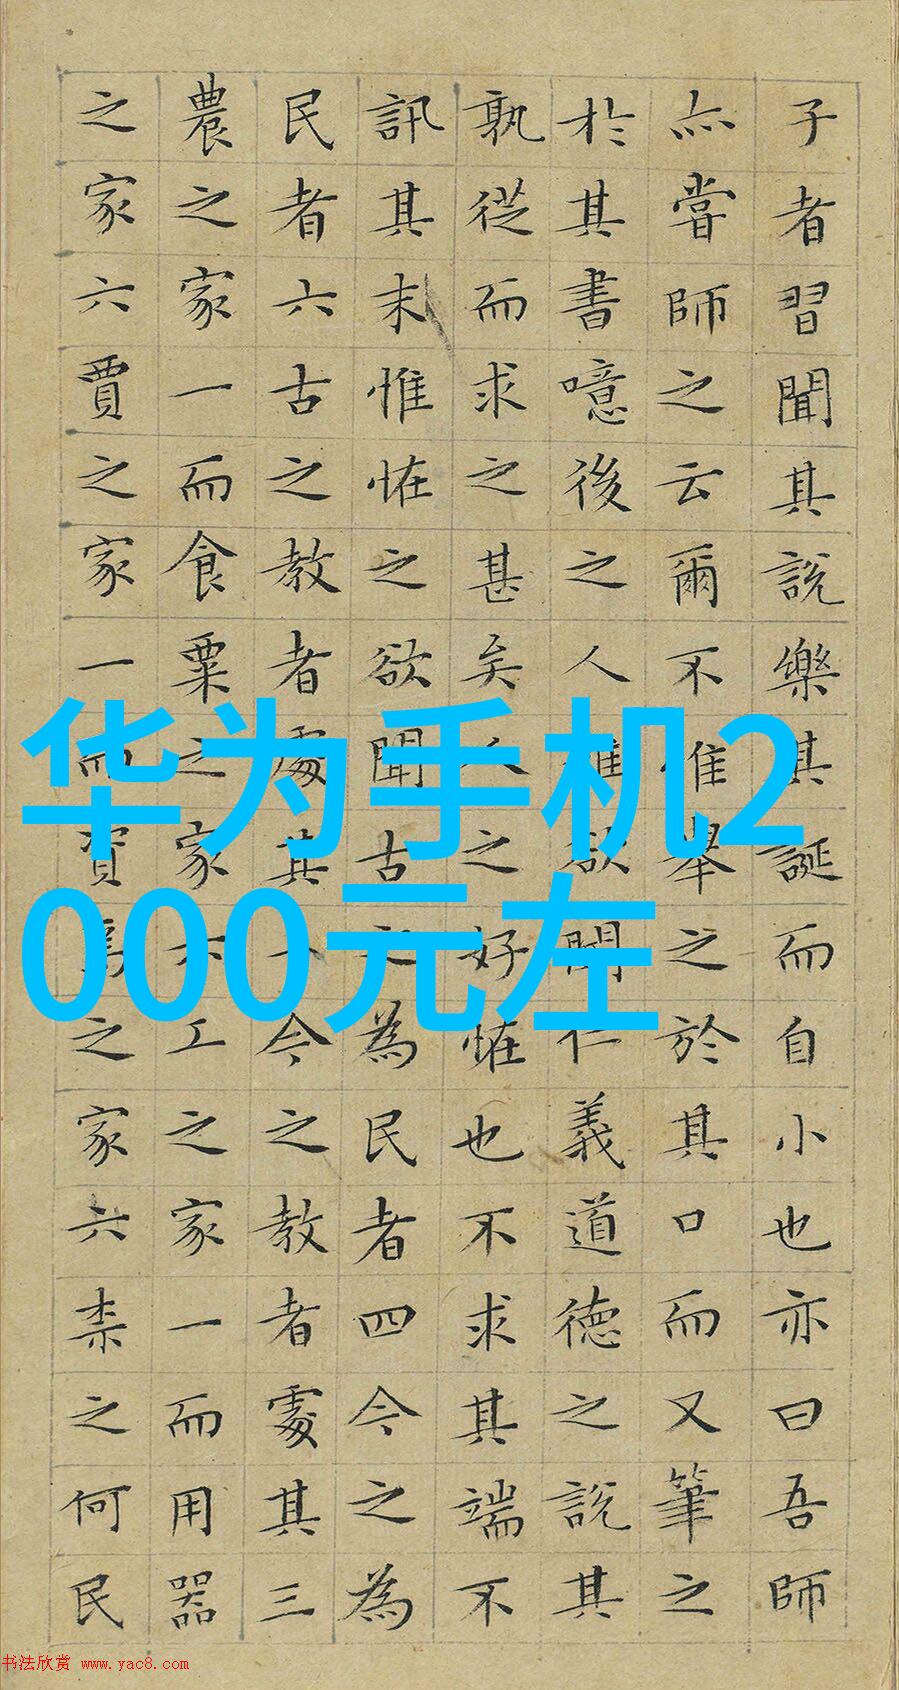 子者習聞其說樂其誕而自小也亦曰吾師
亦嘗師之云爾不惟舉之於其口而又筆之
於其書噫後之人雖欲聞仁義道德之說其
孰從而求之甚矣人之好恠也不求其端不
訊其末惟恠之欲聞古之為民者四今之為
民者六古之教者處其一今之教者處其三
農之家一而食粟之家六工之家一而用器
之家六賈之家一而資焉之家六柰之何民
华为手机2
000元左
书法欣赏 www.yac8.com